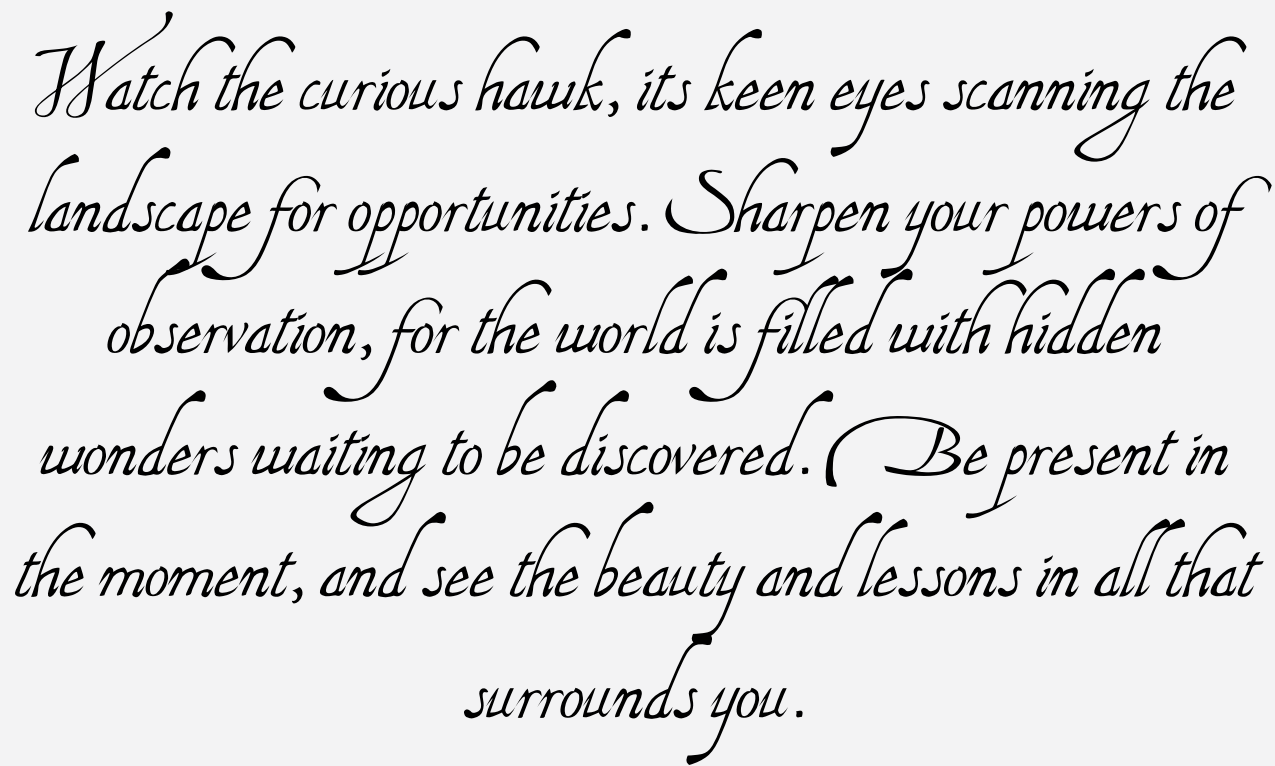 Watch the curious hawk, its keen eyes scanning the
landscape for opportunities. Sharpen your powers of
observation, for the world is filled with hidden
wonders waiting to be discovered. Be present in
the moment, and see the beauty and lessons in all that
surrounds you.